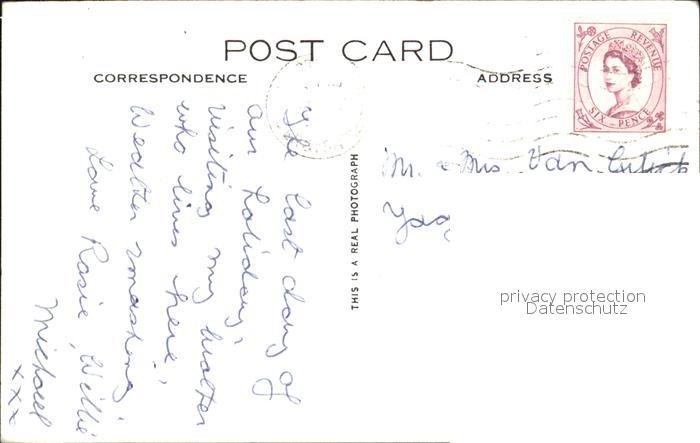 POST CARD
CORRESPONDENCE
ADDRESS
POSTAGE REVENUE
SIX-PENCE
The last day of
our holiday,
visiting my brother
who lives here,
Weather smashing,
Love Rosie, Willie
Michael
xxx
THIS IS A REAL PHOTOGRAPH
Mr. & Mrs Van
privacy protection
Datenschutz